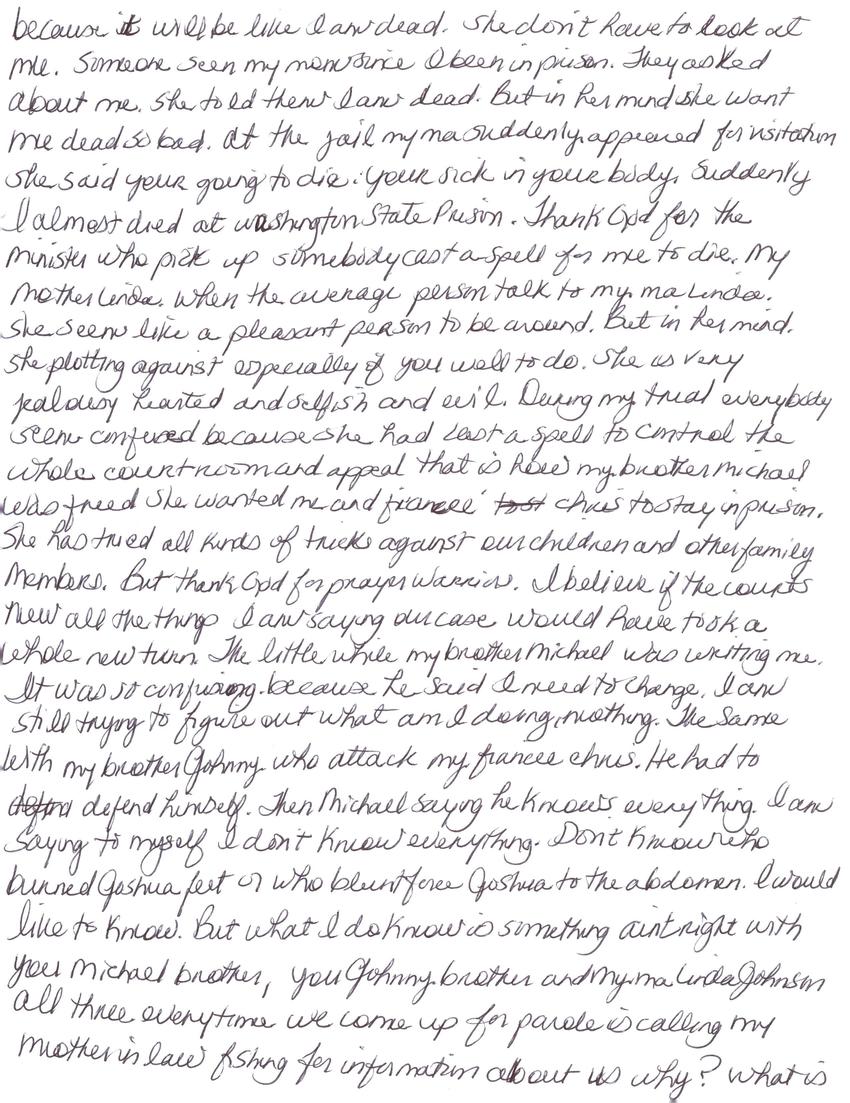 because it will be like I am dead. She don't have to look at
me. Someone seen my mom since I been in prison. They asked
about me. She told them I am dead. But in her mind she want
me dead so bad. At the jail my ma suddenly appeared for visitation
she said your going to die. Your sick in your body. Suddenly
I almost died at Washington State Prison. Thank God for the
minister who pick up somebody cast a spell for me to die. My
mother Linda. When the average person talk to my ma Linda.
She seem like a pleasant person to be around. But in her mind.
She plotting against especially if you well to do. She is very
jealousy hearted and selfish and evil. During my trial everybody
seem confused because she had cast a spell to control the
whole courtroom and appeal that is how my brother Michael
was freed she wanted me and fiancee' tost chris to stay in prison.
She has tried all kinds of tricks against our children and other family
members. But thank God for prayer warriors. I believe if the courts
new all the things I am saying our case would have took a
whole new turn. The little while my brother Michael was writing me.
It was so confusing. because he said I need to change. I am
still trying to figure out what am I doing, nothing. The same
with my brother Johnny who attack my fiancee chris. He had to
defend himself. Then Michael saying he knows everything. I am
saying to myself I don't know everything. Don't know who
burned Joshua feet or who blunt force Joshua to the abdomen. I would
like to know. But what I do know is something aint right with
you Michael brother, you Johnny brother and my ma Linda Johnson
all three everytime we come up for parole is calling my
mother in law fishing for information about us why? What is